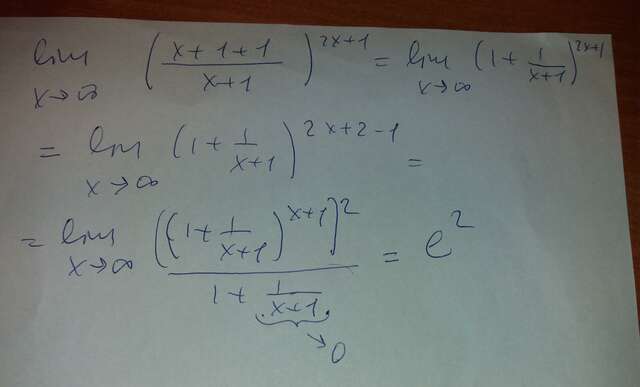 lim x→∞ ((x+1+1)/(x+1))^(2x+1) = lim x→∞ (1+1/(x+1))^(2x+1)
= lim x→∞ (1+1/(x+1))^(2x+2-1) =
= lim x→∞ ((1+1/(x+1))^(x+1))^2 / (1+1/(x+1)) = e^2
→0